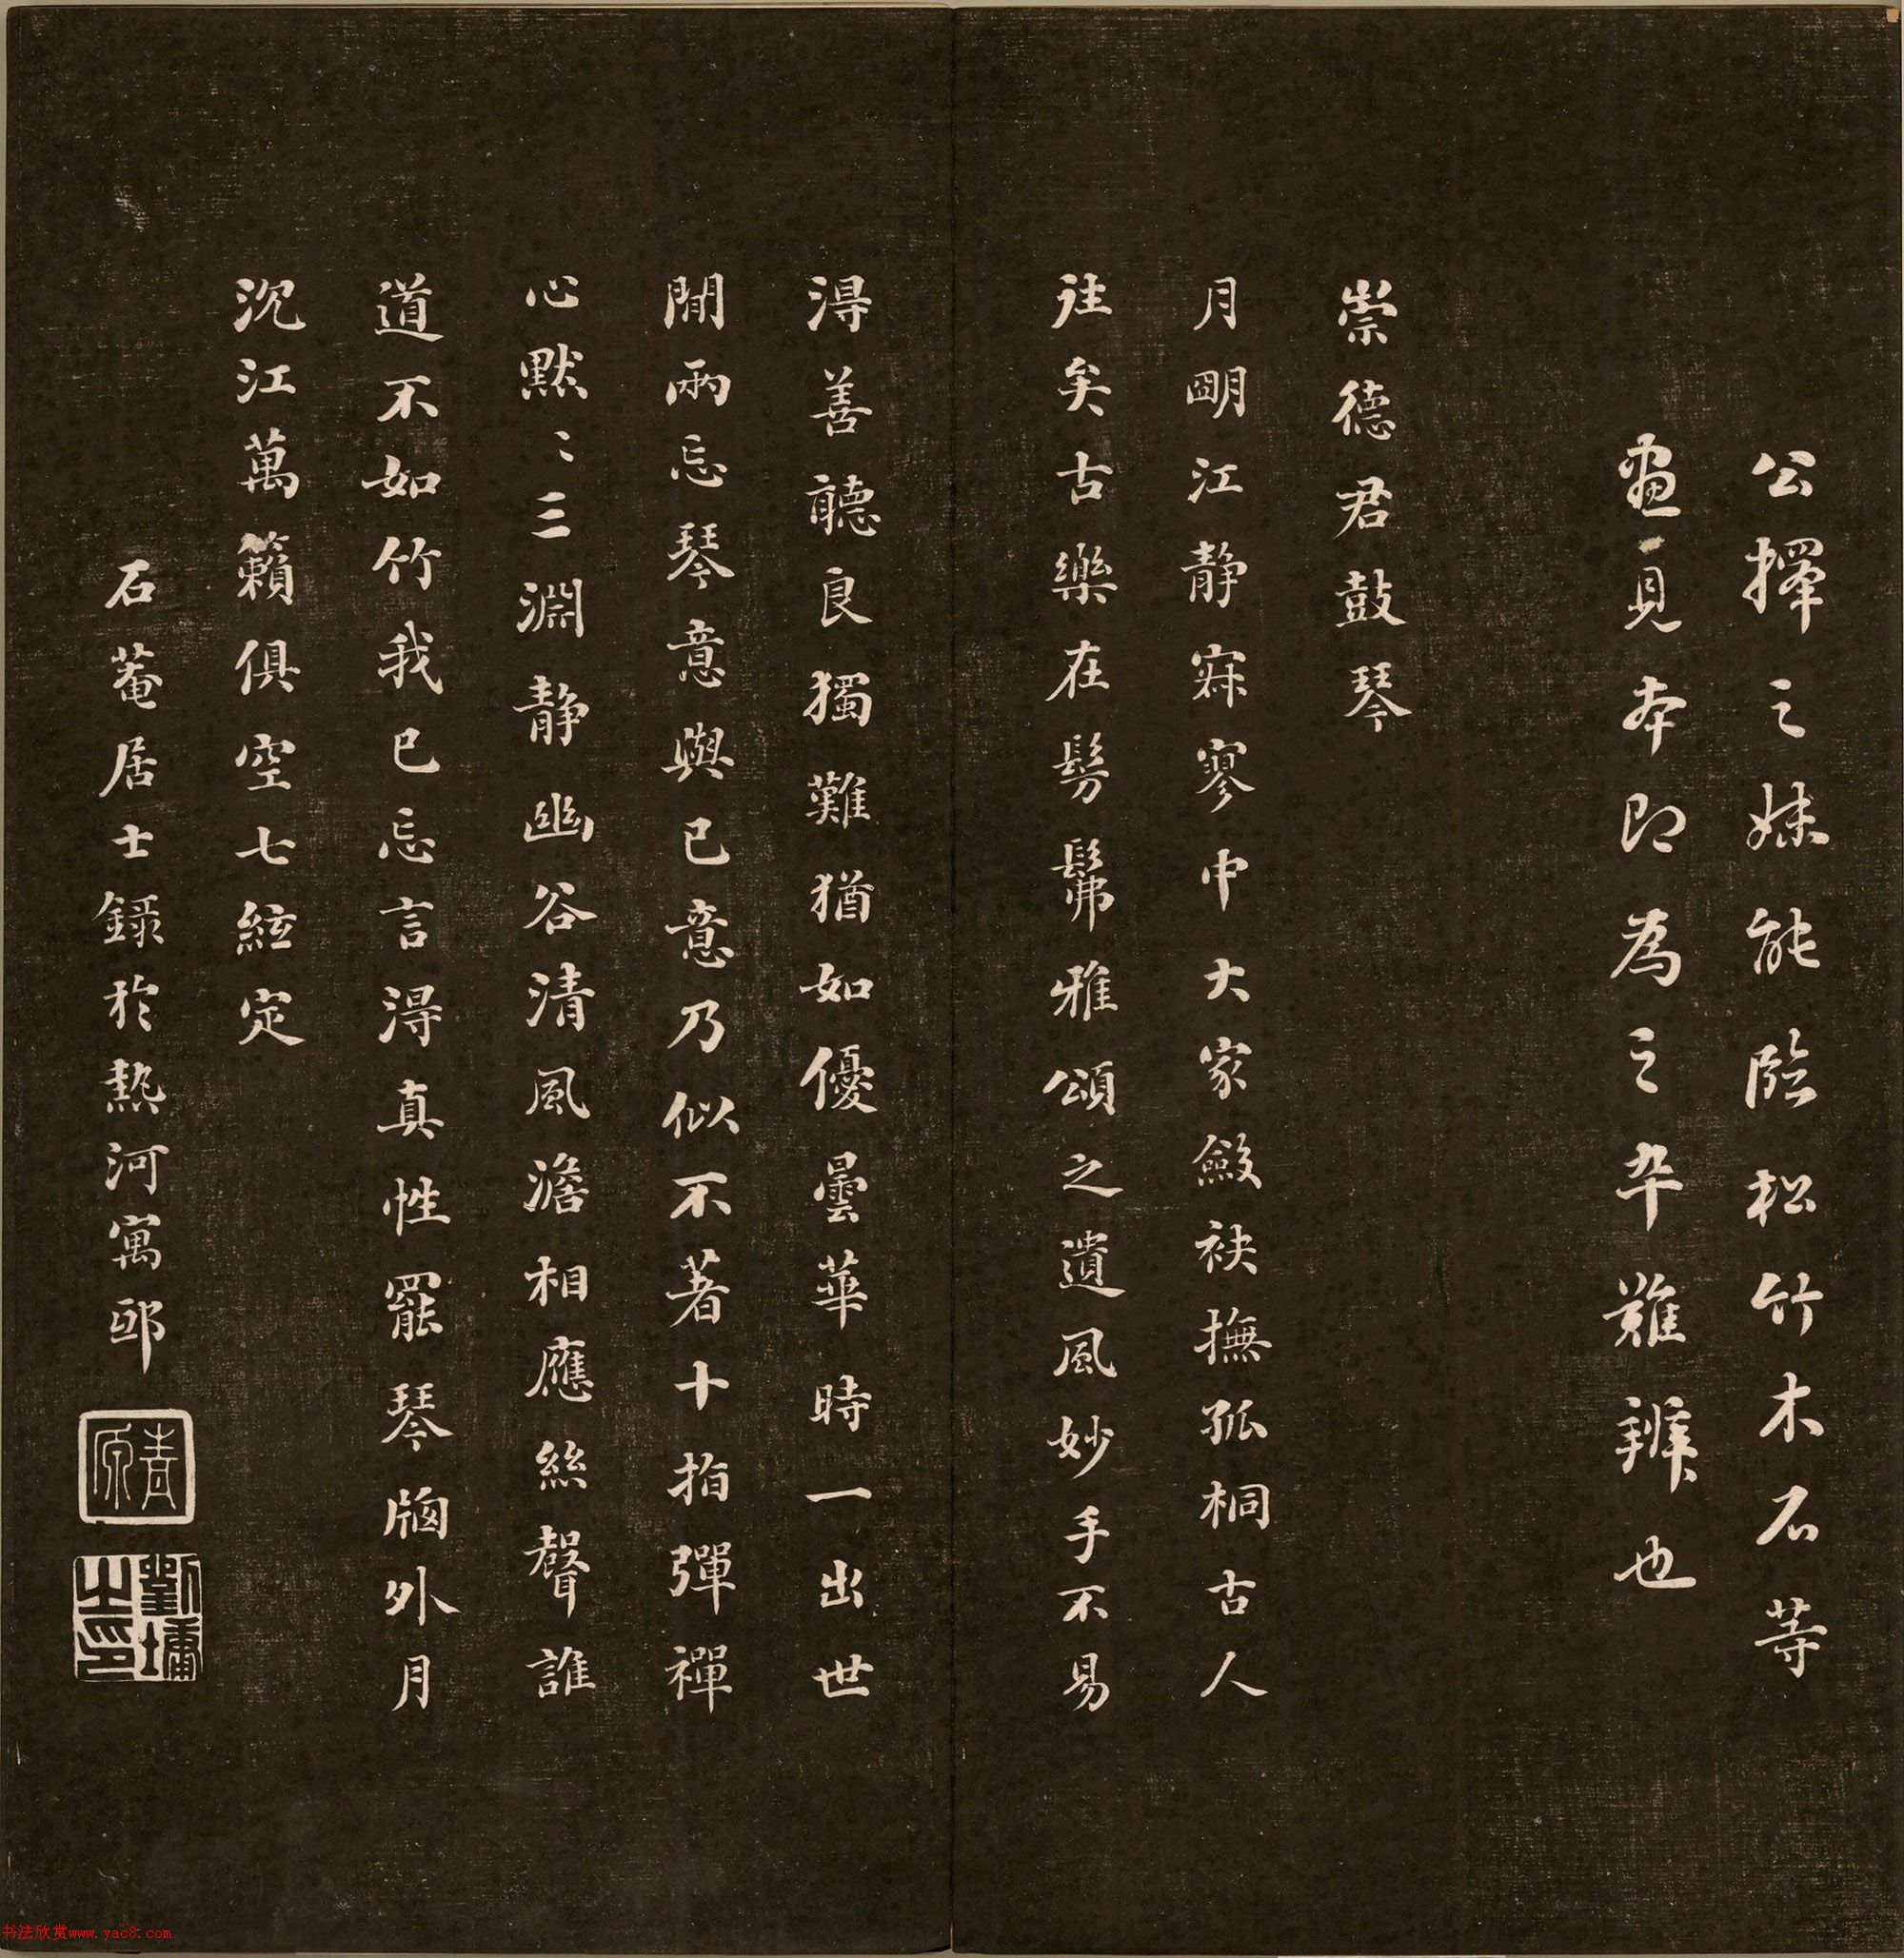 公擇之妹能臨松竹木石等
畫見本即為之卒難辨也
崇德君鼓琴
月朙江静寂寥中大家斂袂撫孤桐古人
往矣古樂在髣髴雅頌之遺風妙手不易
得善聽良獨難猶如優曇華時一出世
間兩忘琴意與己意乃似不著十指彈禪
心默〻三淵静幽谷清風澹相應絲聲誰
道不如竹我已忘言得真性罷琴牕外月
沉江萬籟俱空七絃定
石菴居士錄於熱河寓邸
青原
劉墉之印
书法欣赏www.yac8.com